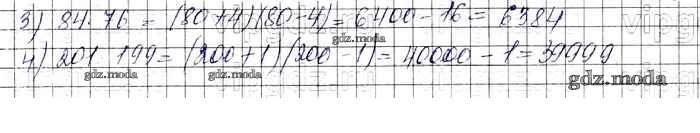 3) 84 · 76 = (80 + 4)(80 - 4) = 6400 - 16 = 6384
4) 201 199 = (200 + 1)(200 - 1) = 40000 - 1 = 39999
gdz.moda gdz.moda gdz.moda
vipg